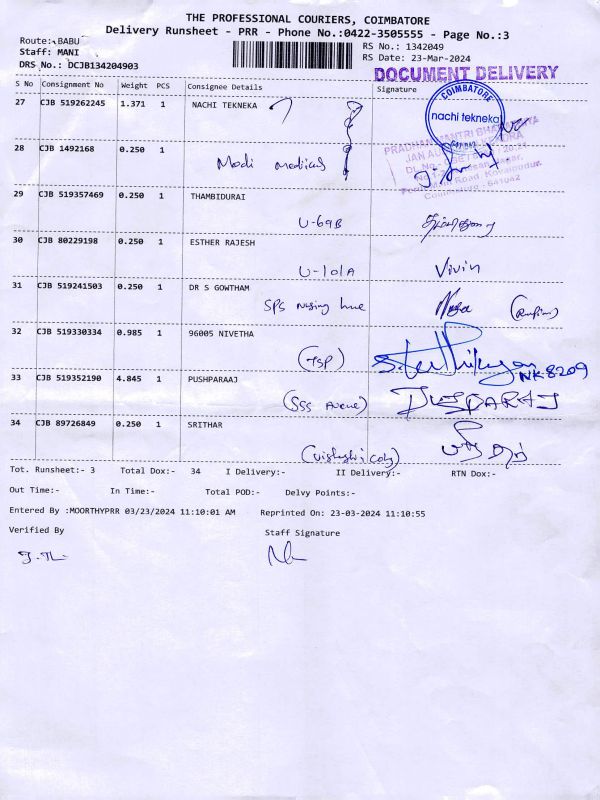 THE PROFESSIONAL COURIERS, COIMBATORE
Delivery Runsheet - PRR - Phone No.:0422-3505555 - Page No.:3
Route: BABU
Staff: MANI
DRS No.: DCJB134204903
RS No.: 1342049
RS Date: 23-Mar-2024
DOCUMENT DELIVERY
S No Consignment No Weight PCS Consignee Details Signature
27 CJB 519262245 1.371 1 NACHI TEKNEKA
COIMBATORE
nachi tekneka
28 CJB 1492168 0.250 1
Modi medicals
29 CJB 519357469 0.250 1 THAMBIDURAI
U-69B
30 CJB 80229198 0.250 1 ESTHER RAJESH
U-101A Vivin
31 CJB 519241503 0.250 1 DR S GOWTHAM
SPS
32 CJB 519330334 0.985 1 96005 NIVETHA
(TSP)
NK8209
33 CJB 519352190 4.845 1 PUSHPARAAJ
(SSS Avenue)
34 CJB 89726849 0.250 1 SRITHAR
Tot. Runsheet:- 3 Total Dox:- 34 I Delivery:- II Delivery:- RTN Dox:-
Out Time:- In Time:- Total POD:- Delvy Points:-
Entered By :MOORTHYPRR 03/23/2024 11:10:01 AM Reprinted On: 23-03-2024 11:10:55
Verified By Staff Signature